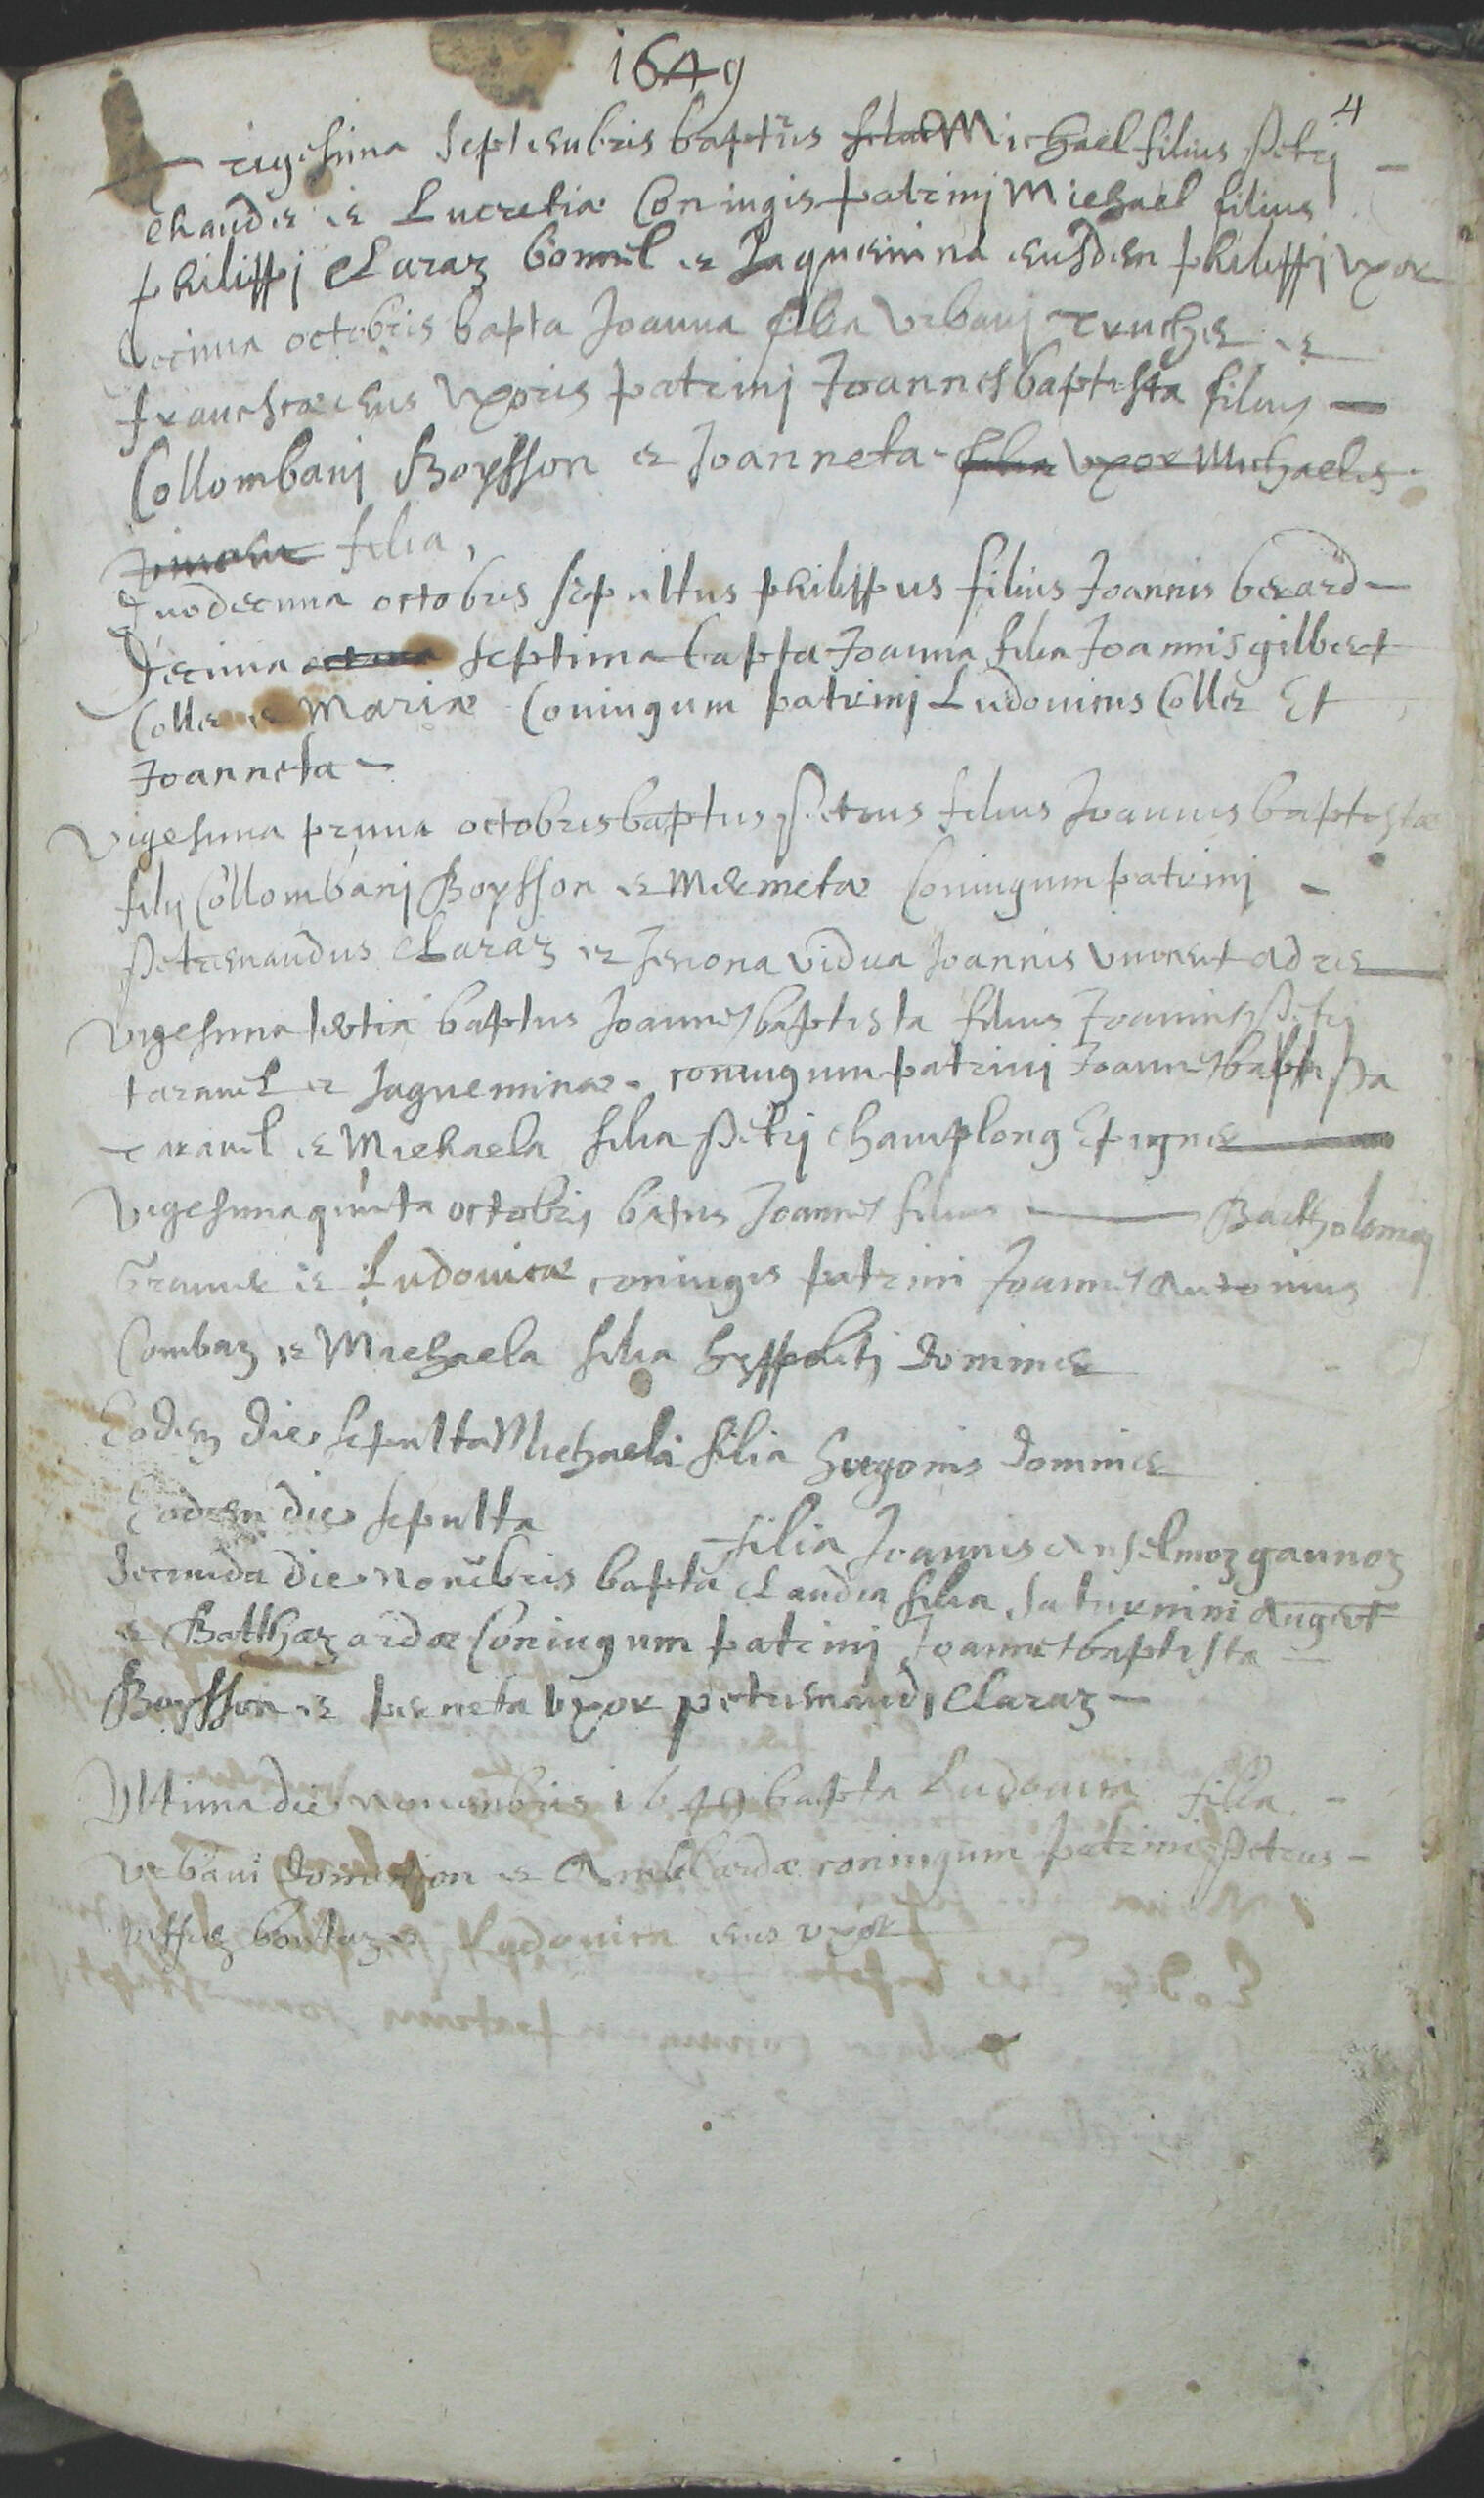 1649
4
Trigesima septembris baptus Michael filius Petri
chauder et Lucretiæ Coniugis patrinj Michael filius
philippj Claraz bonnel et Jaquemina eiusdem philippj uxor
Decima octobris bapta Joanna filia Urbanj truchet et
franciscæ eius uxoris patrinj Joannesbaptista filius
Collombanj Boysson et Joanneta filia uxor Michaelis
filia,
Duodecima octobris sepultus philippus filius Joannis berard
Decima octava septima bapta Joanna filia Joannis gilbert
Collet et Mariæ Coniugum patrinj Ludovicus Collet Et
Joanneta
Vigesima prima octobris baptus Petrus filius Joannis baptistæ
filij Collombanj Boysson et Mermetæ Coniugum patrinj
Petremandus Claraz et Jenona vidua Joannis vincent adrie
Vigesima tertia baptus Joannesbaptista filius Joannis Petri
taravel et Jaqueminæ coniugum patrinj Joannesbaptista
taravel et Michaela filia Petrj champlong Epigner
Vigesimaquinta octobris batus Joannes filius Bartholomej
et Ludovicæ coniugis patrini Joannes Antonius
Combaz et Michaela filia hyppolitj Domnier
Eodem die sepulta Michaela filia hugonis Domnier
Eodem die sepulta filia Joannis Anselmoz gaunoz
secunda die novēbris bapta Claudia filia saturnini Auget
et Balthazardæ Coniugum patrinj Joannesbaptista
Boysson et perneta uxor petremandi Claraz
Ultima die novembris 1649 bapta Ludovica filia
Urbani et Amblardæ coniugum patrini Petrus
et Ludovica eius uxor